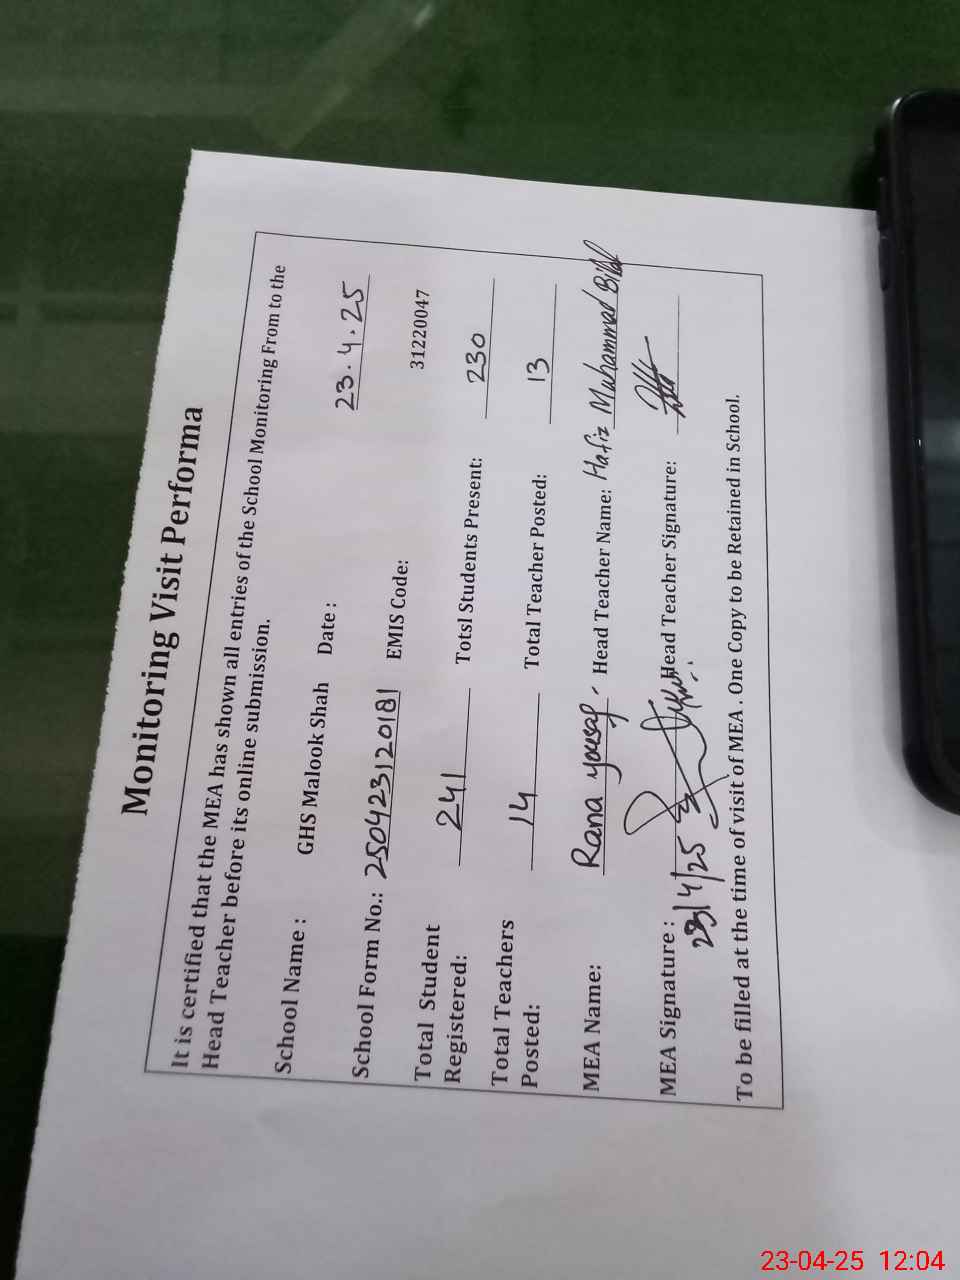 Monitoring Visit Performa
It is certified that the MEA has shown all entries of the School Monitoring From to the
Head Teacher before its online submission.
School Name : GHS Malook Shah Date : 23.4.25
School Form No.: 250423120181 EMIS Code: 31220047
Total Student
Registered: 241 Totsl Students Present: 230
Total Teachers
Posted: 14 Total Teacher Posted: 13
MEA Name: Rana yousaf Head Teacher Name: Hafiz Muhammad Bilal
MEA Signature : Head Teacher Signature:
23/4/25
To be filled at the time of visit of MEA. One Copy to be Retained in School.
23-04-25 12:04